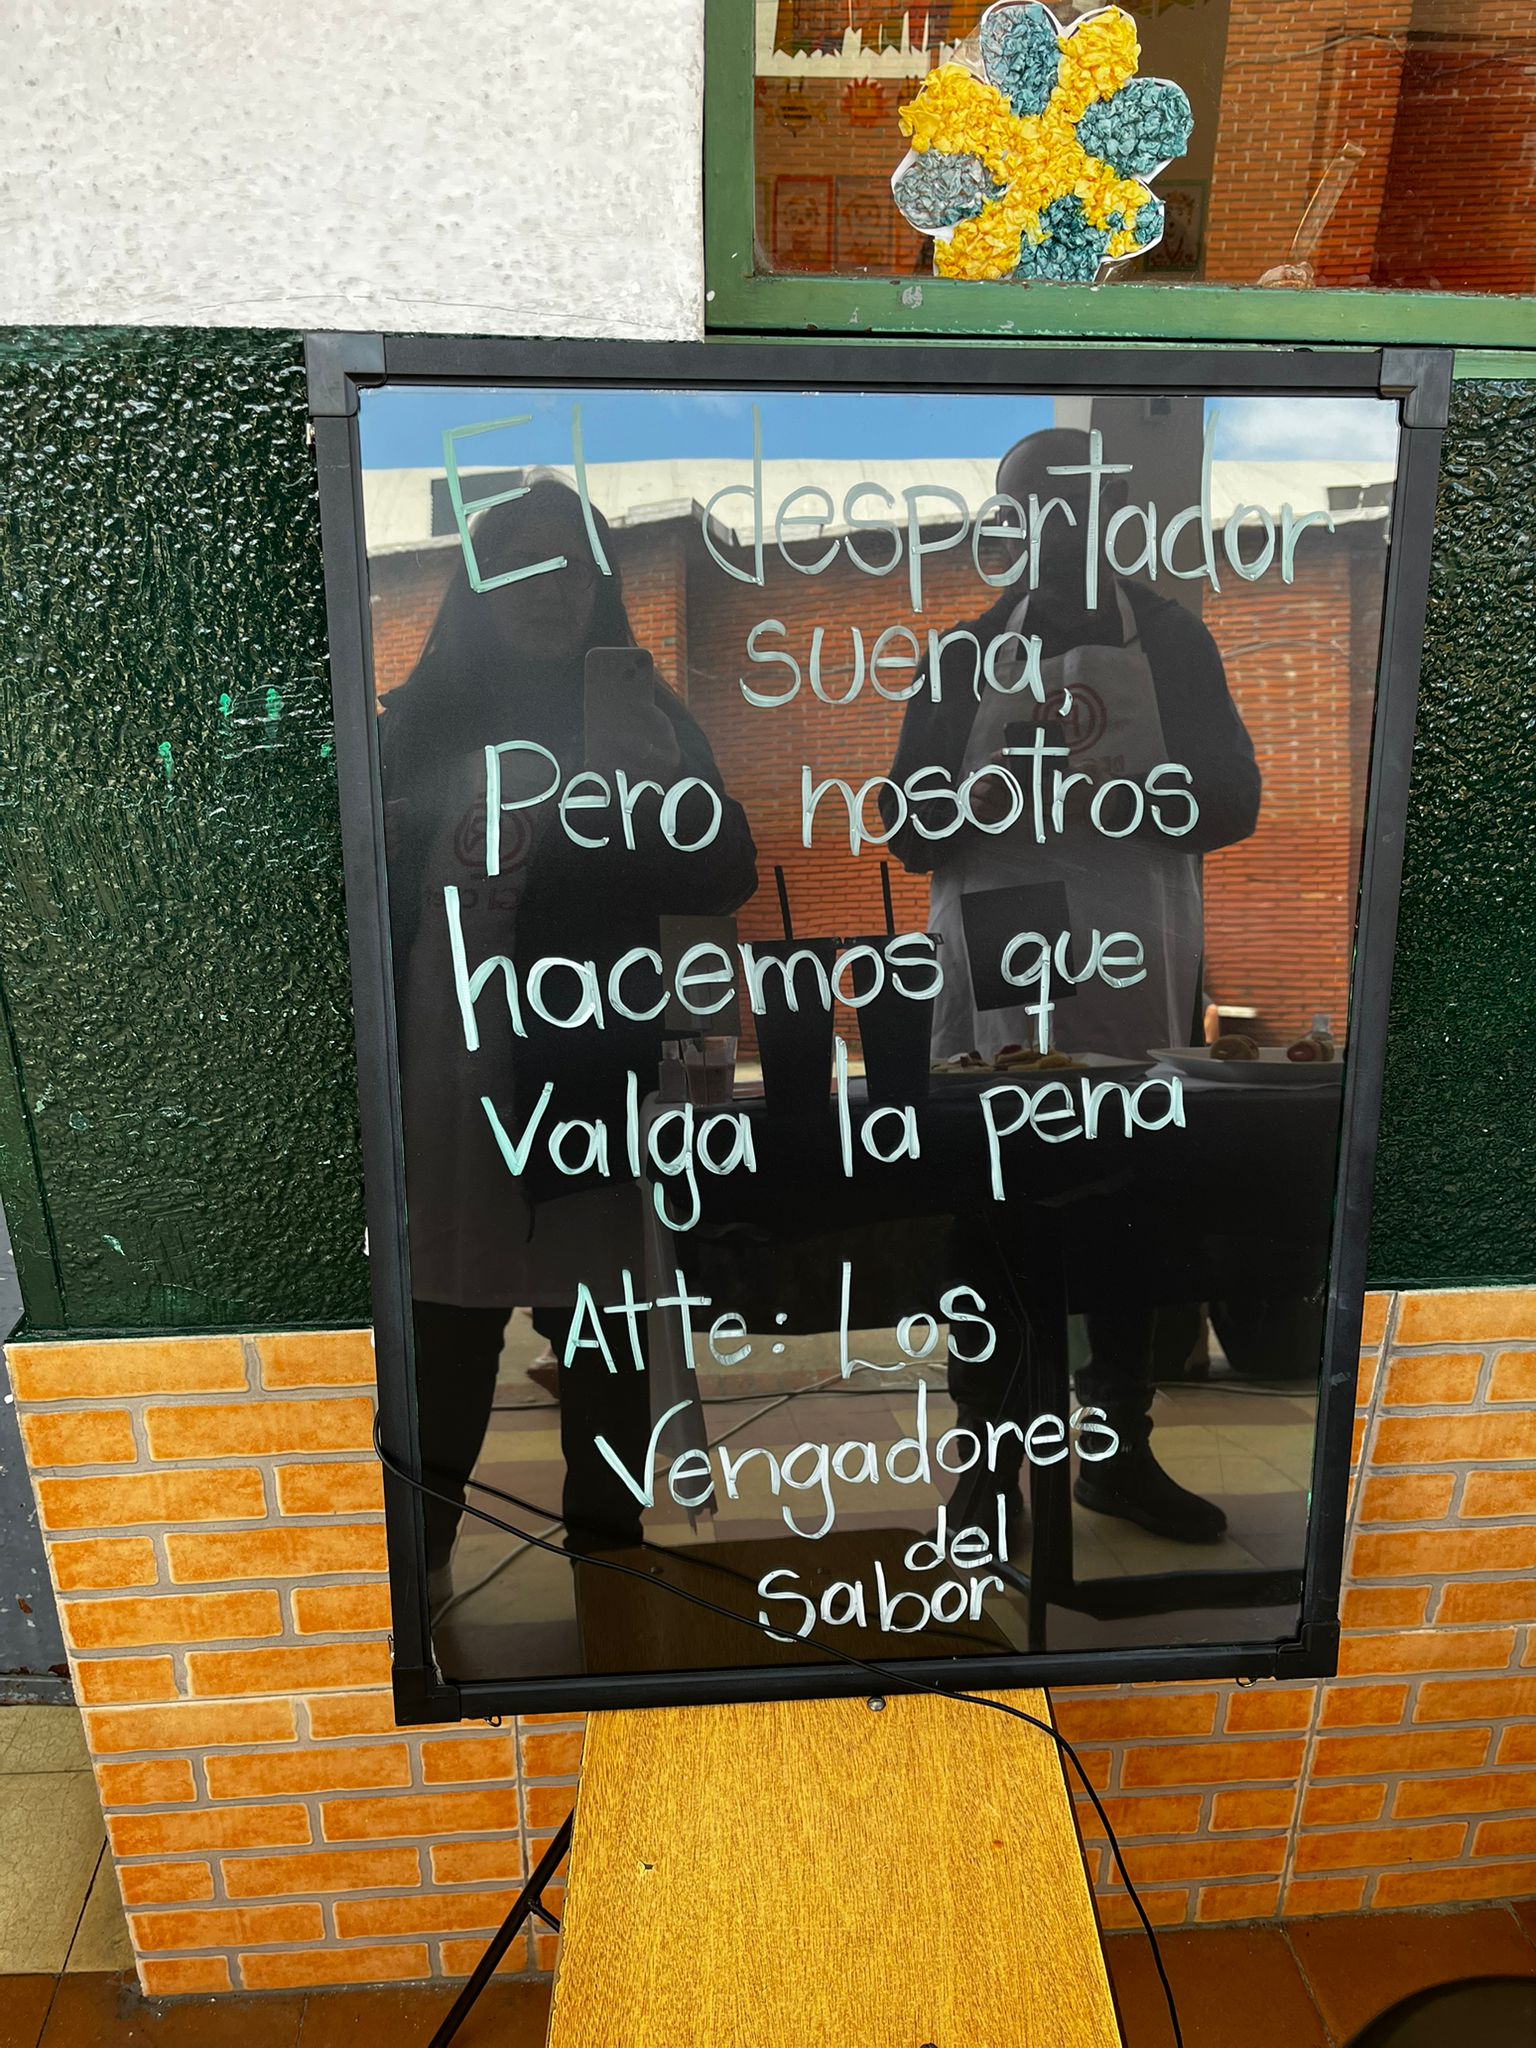 El despertador
suena,
Pero nosotros
hacemos que
Valga la pena
Atte: Los
Vengadores
del
Sabor